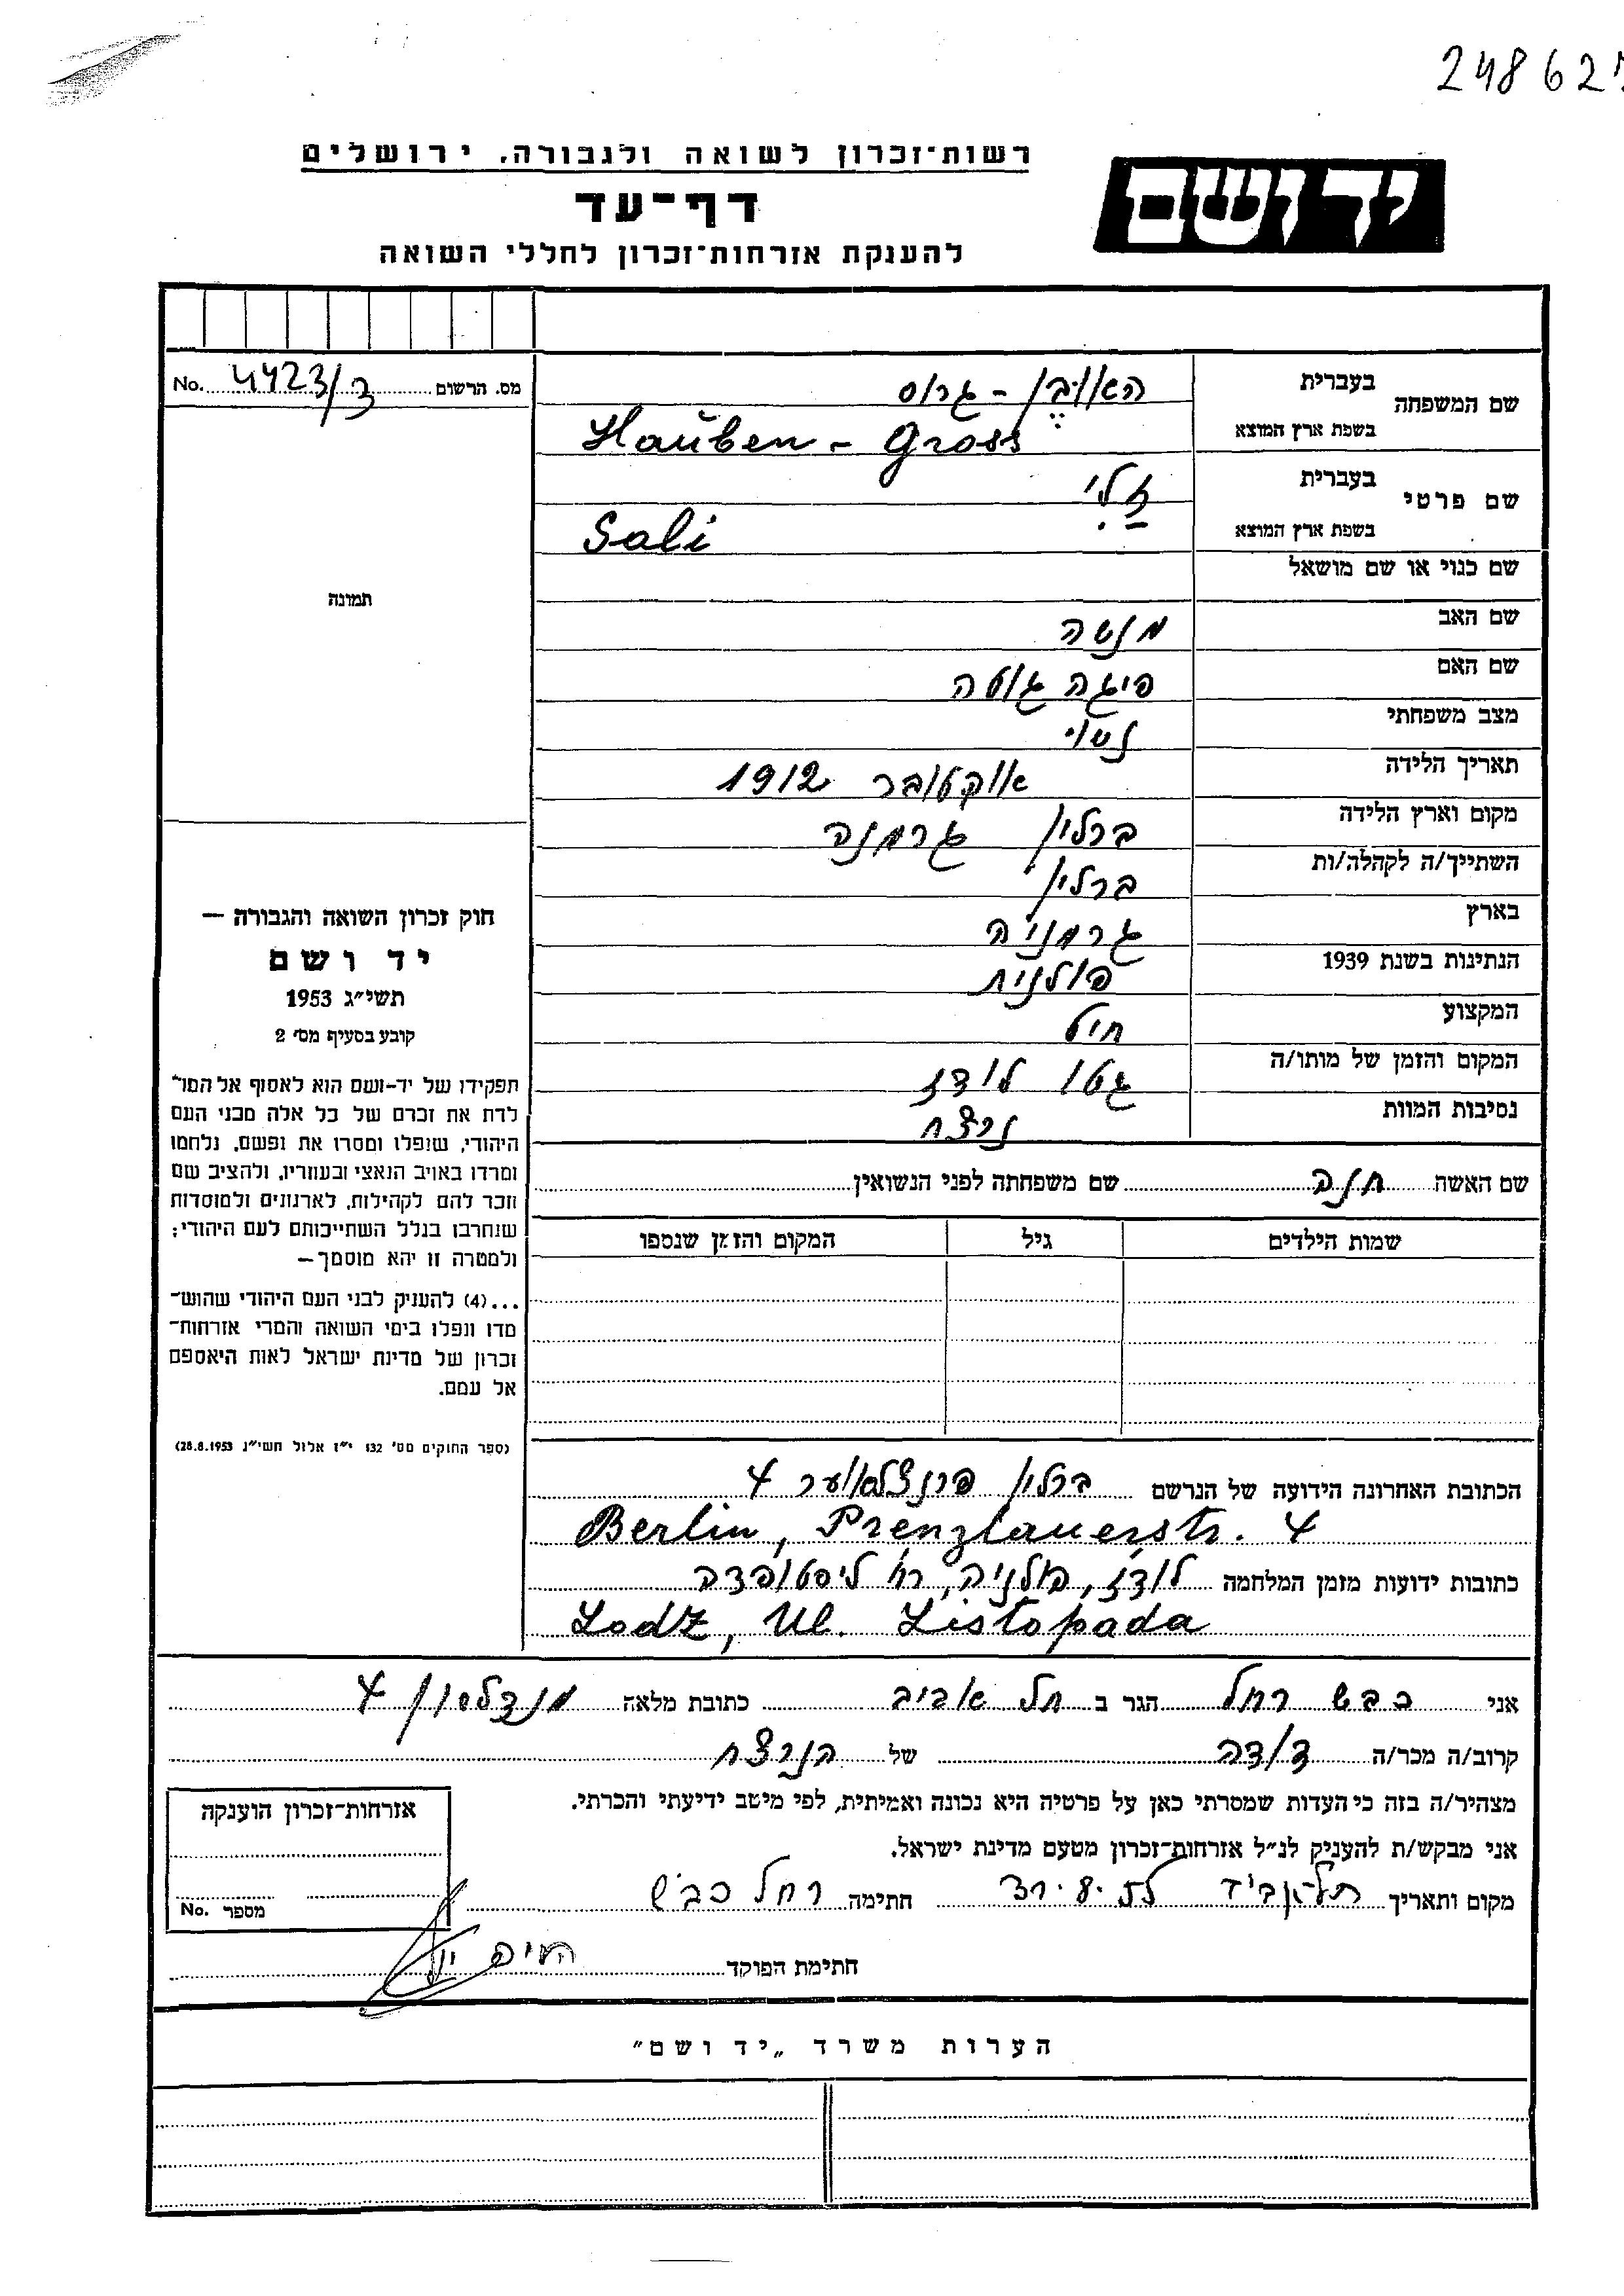 248627
רשות־זכרון לשואה ולגבורה, ירושלים
יד ושם
דף־עד
להענקת אזרחות־זכרון לחללי השואה
מס. הרשום 4423/ No.
תמונה
חוק זכרון השואה והגבורה —
יד ושם
תשי״ג 1953
קובע בסעיף מס׳ 2
תפקידו של יד־ושם הוא לאסוף אל המו־
לדת את זכרם של כל אלה מבני העם
היהודי, שנפלו ומסרו את נפשם, נלחמו
ומרדו באויב הנאצי ובעוזריו, ולהציב שם
וזכר להם לקהילות, לארגונים ולמוסדות
שנחרבו בגלל השתייכותם לעם היהודי;
ולמטרה זו יהא מוסמך—
...(4) להעניק לבני העם היהודי שהוש־
מדו ונפלו בימי השואה והמרי אזרחות־
זכרון של מדינת ישראל לאות היאספם
אל עמם.
(ספר החוקים מס׳ 132 י״ז אלול תשי״ג 28.8.1953)
שם המשפחה בעברית האובן - גרוס
בשפת ארץ המוצא Hauben - Gross
שם פרטי בעברית זלי
בשפת ארץ המוצא Sali
שם כנוי או שם מושאל
שם האב מנשה
שם האם פיגה גוטה
מצב משפחתי נשוי
תאריך הלידה אוקטובר 1912
מקום וארץ הלידה ברלין גרמנה
השתייך/ה לקהלה/ות ברלין
בארץ גרמניה
הנתינות בשנת 1939 פולנית
המקצוע חיט
המקום והזמן של מותו/ה גטו לודז
נסיבות המוות נרצח
שם האשה חנה שם משפחתה לפני הנשואין
שמות הילדים גיל המקום והזמן שנספו
הכתובת האחרונה הידועה של הנרשם ברלין פרנצלאוער 4
Berlin, Prenzlauerstr. 4
כתובות ידועות מזמן המלחמה לודז, פולניה, רח׳ ליסטופדה
Lodz, Ul. Listopada
אני כבש רחל הגר ב תל אביב כתובת מלאה מנדלסון 4
קרוב/ה מכר/ה דודה של הנרצח
מצהיר/ה בזה כי העדות שמסרתי כאן על פרטיה היא נכונה ואמיתית, לפי מיטב ידיעתי והכרתי.
אני מבקש/ת להעניק לנ״ל אזרחות־זכרון מטעם מדינת ישראל.
מקום ותאריך תל־אביב חתימה רחל כבש
חתימת הפוקד
אזרחות־זכרון הוענקה
מספר No.
הערות משרד „יד ושם״